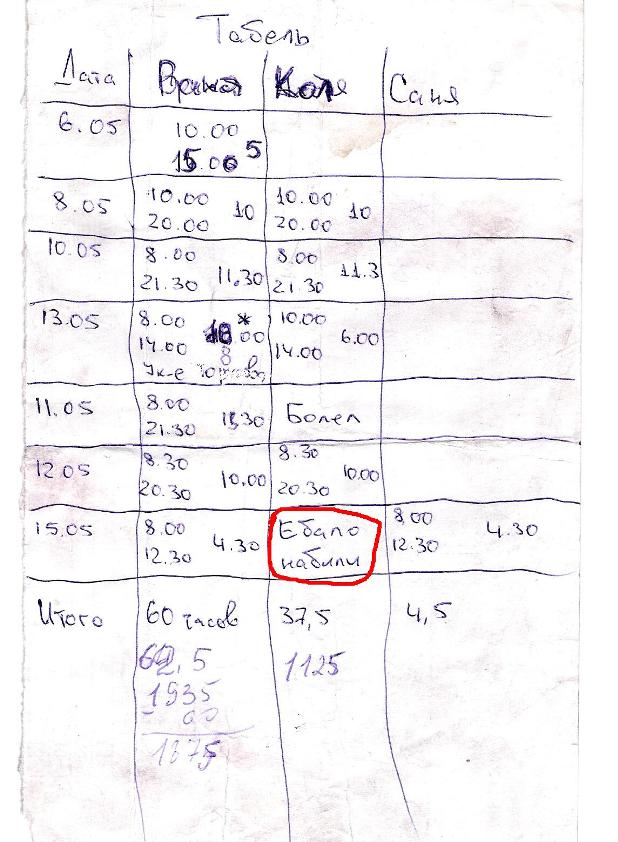 Табель
Дата Коля Саня
6.05 10.00
15.00 5
8.05 10.00 10 10.00 10
20.00 20.00
10.05 8.00 8.00
21.30 11.30 21.30 11.3
13.05 8.00 * 10.00
14.00 00 14.00 6.00
8
Ук-е
11.05 8.00 Болел
21.30 11,30
12.05 8.30 8.30
20.30 10.00 20.30 10.00
15.05 8.00 4.30 Ебало 8.00 4.30
12.30 набили 12.30
Итого 60 часов 37,5 4,5
62,5 1125
1935
- 60
1875